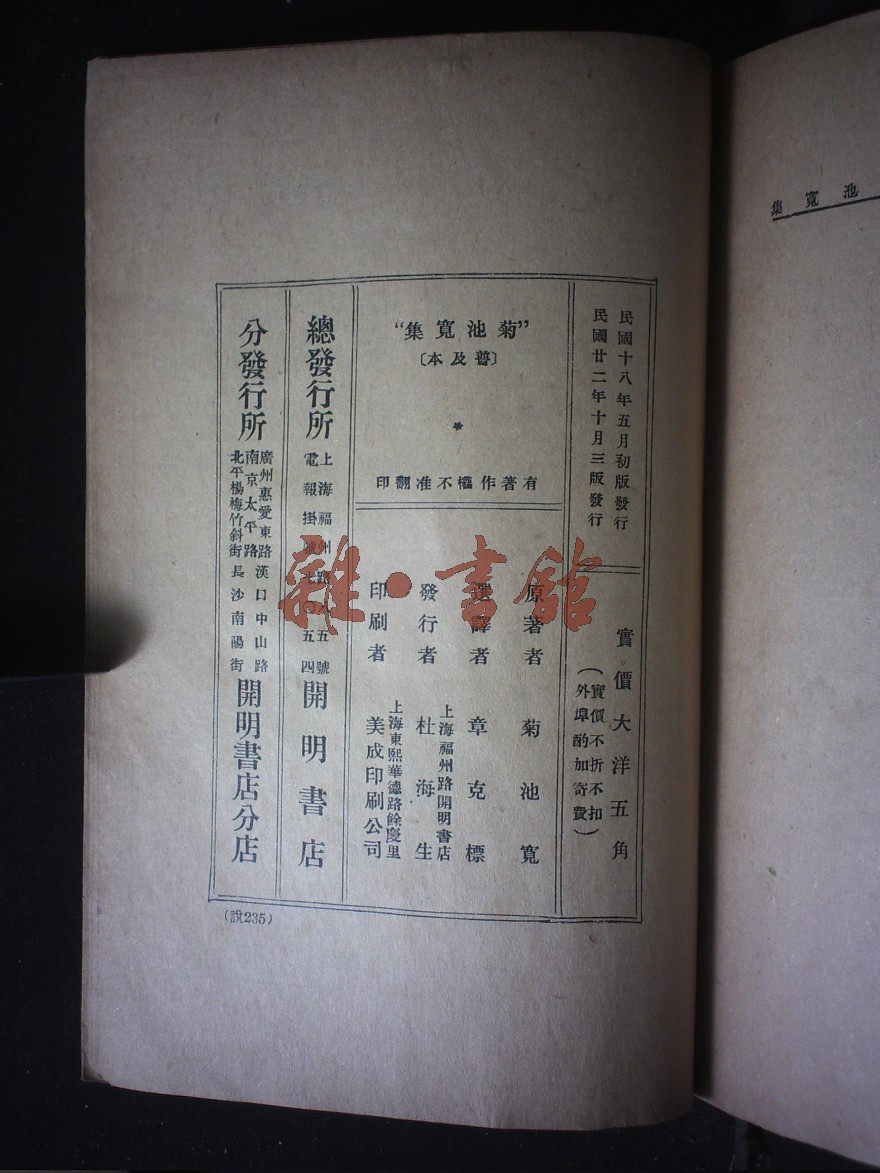 民國十八年五月初版發行
民國廿二年十月三版發行
實價大洋五角
(實價不折不扣
外埠酌加寄費)
"菊池寬集"
〔普及本〕
*
有著作權不准翻印
原著者 菊池寬
選譯者 章克標
發行者 上海福州路開明書店
杜海生
印刷者 上海東熙華德路餘慶里
美成印刷公司
總發行所 上海福州路八五號
電報掛號七五四
開明書店
分發行所 廣州惠愛東路 漢口中山路
南京太平路
北平楊梅竹斜街 長沙南陽街
開明書店分店
(說235)
池寬集
雜·書館